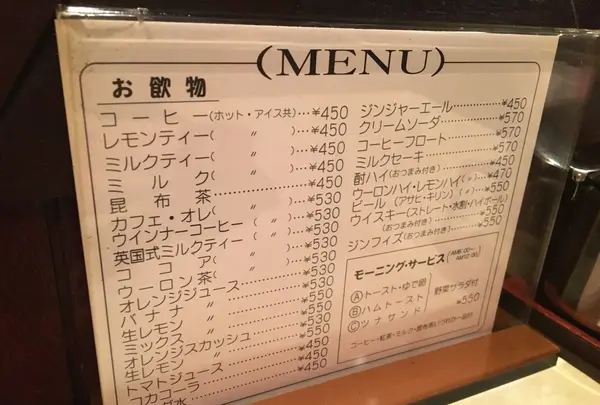 (MENU)
お飲物
コーヒー(ホット・アイス共)…¥450
レモンティー(〃)…¥450
ミルクティー(〃)…¥450
ミルク(〃)…¥450
昆布茶…¥450
カフェ・オレ(〃)…¥530
ウインナーコーヒー(〃)…¥530
英国式ミルクティー(〃)…¥530
ココア(〃)…¥530
ウーロン茶(〃)
オレンジジュース
バナナ〃
生レモン〃
ミックス〃
オレンジスカッシュ
生レモン〃
トマトジュース
コカコーラ
ジンジャーエール…¥450
クリームソーダ…¥570
コーヒーフロート…¥570
ミルクセーキ…¥570
酎ハイ(おつまみ付き)…¥450
ウーロンハイ・レモンハイ(〃)…¥470
ビール(アサヒ・キリン)(〃)…¥550
ウイスキー(ストレート・水割・ハイボール)
(おつまみ付き)…¥550
ジンフィズ(おつまみ付き)…¥550
モーニング・サービス
Ⓐトースト・ゆで卵
Ⓑハムトースト
Ⓒツナサンド
野菜サラダ付
¥550